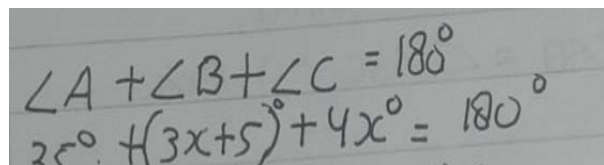 ∠A + ∠B + ∠C = 180°
35° + (3x+5)° + 4x° = 180°